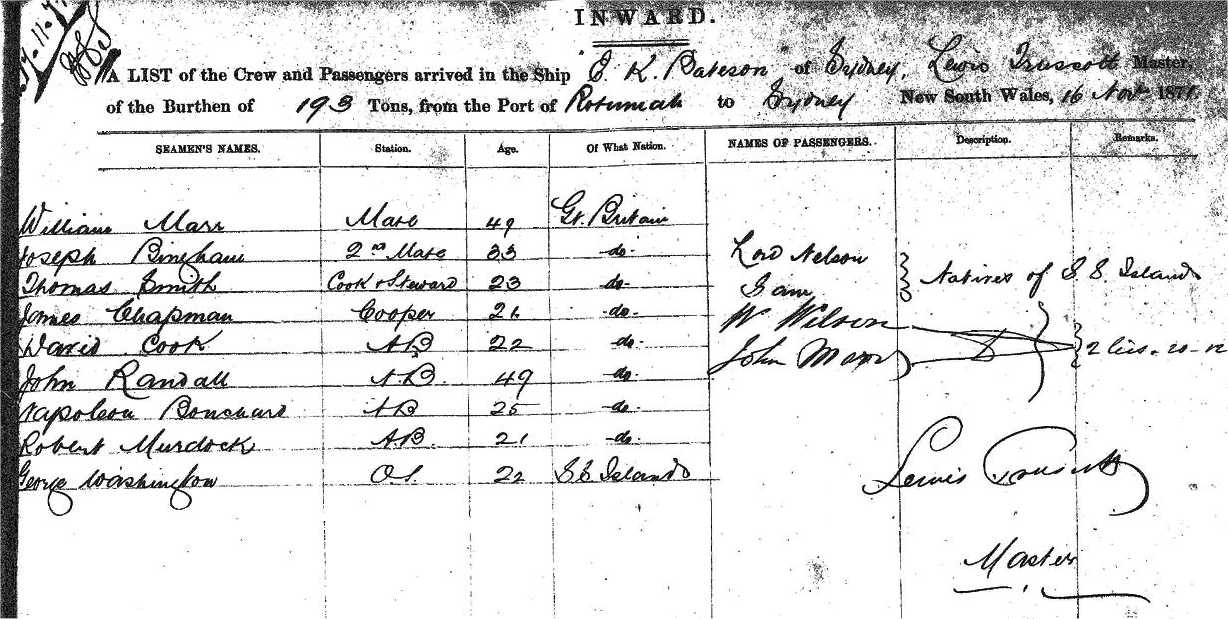 INWARD.
A LIST of the Crew and Passengers arrived in the Ship E. K. Bateson of Sydney, Lewis Truscott Master,
of the Burthen of 193 Tons, from the Port of Rotumah to Sydney New South Wales, 16 Novr 1871
SEAMEN'S NAMES. Station. Age. Of What Nation. NAMES OF PASSENGERS. Description. Remarks.
William Marr Mate 49 Gt. Britain
Joseph Bingham 2nd Mate 33 -do- Lord Nelson
Thomas Smith Cook & Steward 23 -do- Sam Natives of S. S. Islands
James Chapman Cooper 21 -do- W Wilson
David Cook A.B 22 -do- John 2
John Randall A.B. 49 -do-
Napoleon Bouchard AB 25 -do-
Robert Murdock A.B. 21 -do-
George Washington O.S. 22 S.S. Islands
Lewis Truscott
Master